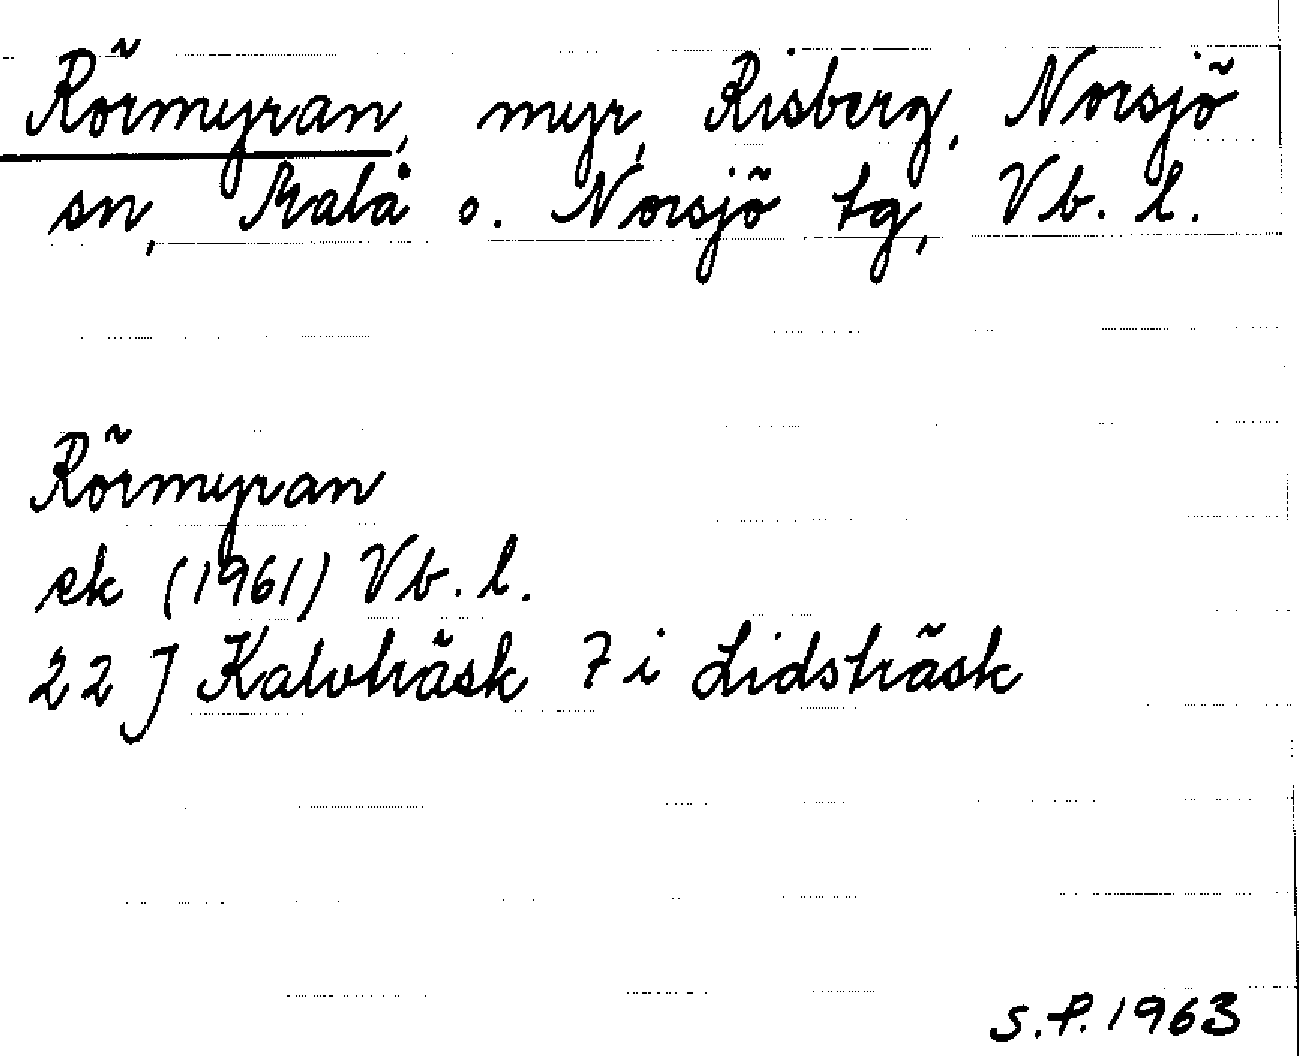 Rörmyran, myr, Risberg, Norsjö
sn, Malå o. Norsjö tg, Vb. l.
Rörmyran
ek (1961) Vb. l.
22 J Kalvträsk 7 i Lidsträsk
S.P. 1963